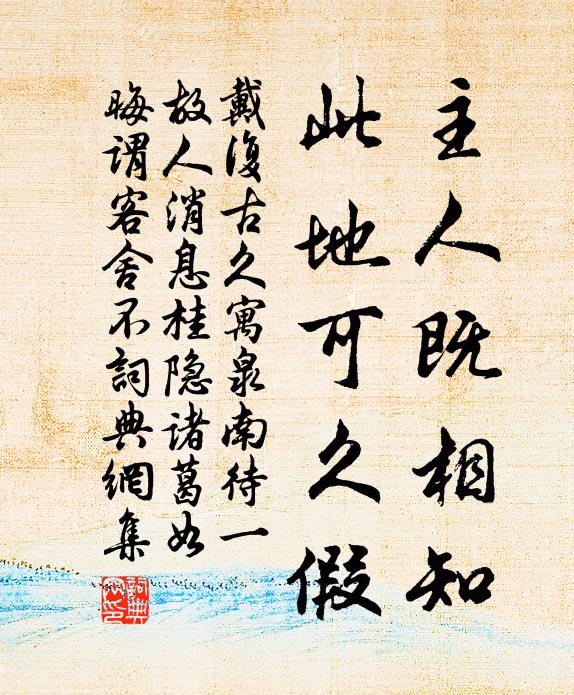 主人既相知
此地可久假
戴復古久寓泉南待一
故人消息桂隐诸葛如
晦谓客舍不詞典網集
詞典